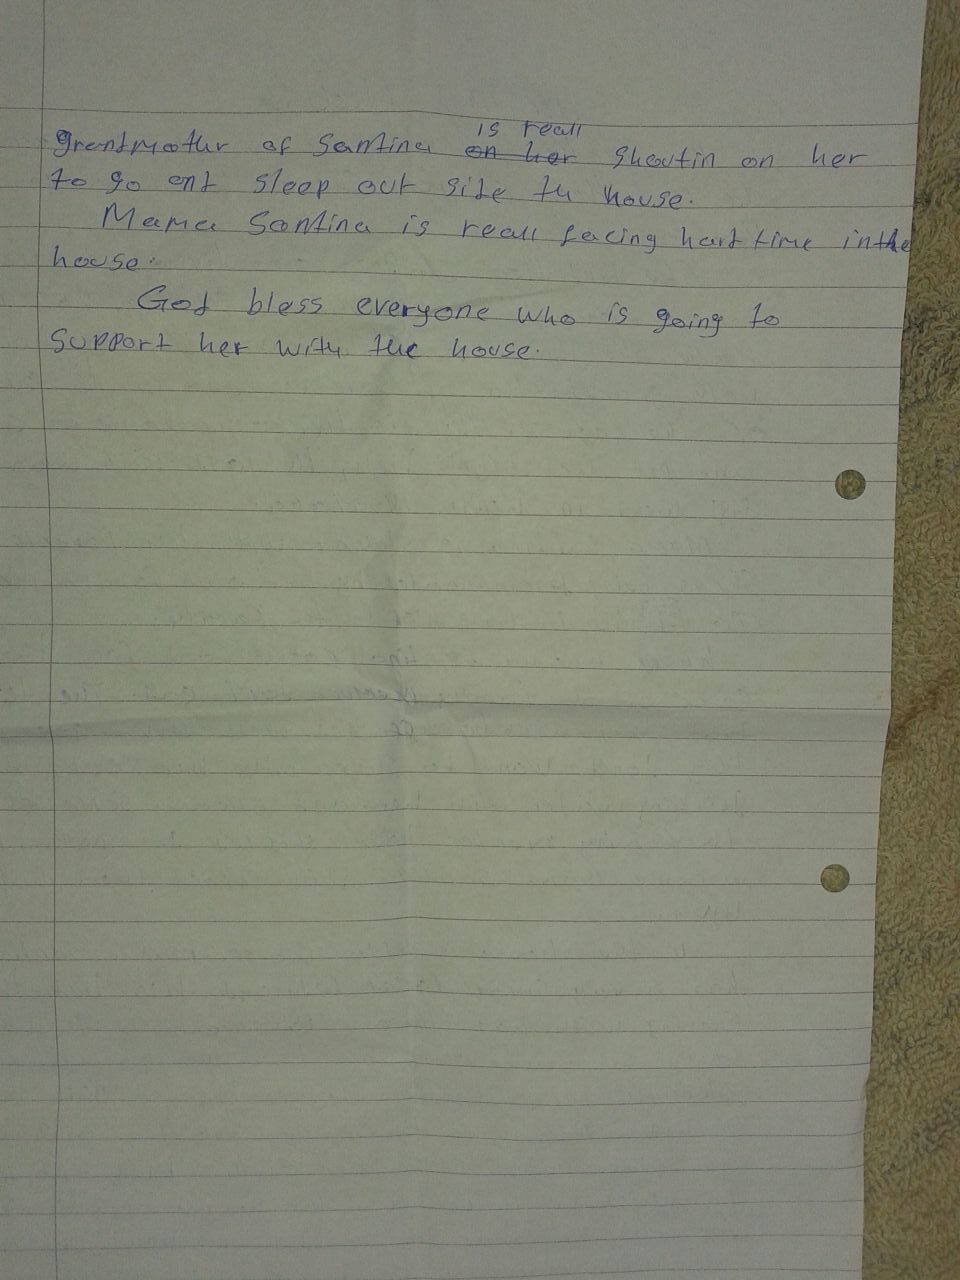 is reall
grandmother of Santina on her Shoutin on her
to go ent sleep out side tu house.
Mama Santina is reall facing hard time in the
house.
God bless everyone who is going to
Support her with the house.